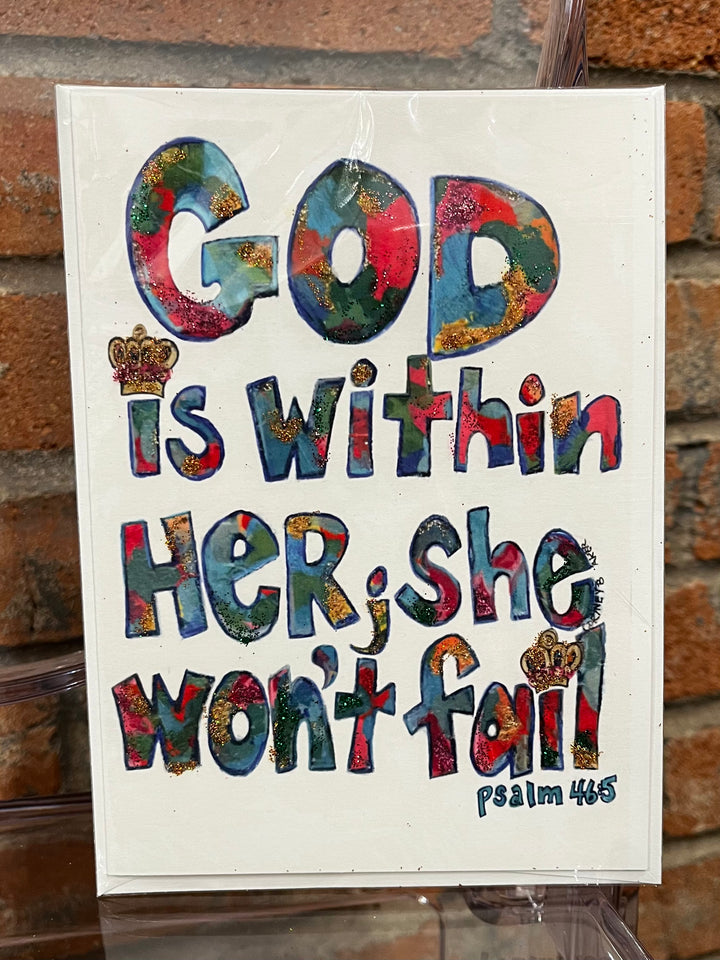 GOD
is within
HeR; she
won't fail
psalm 46:5